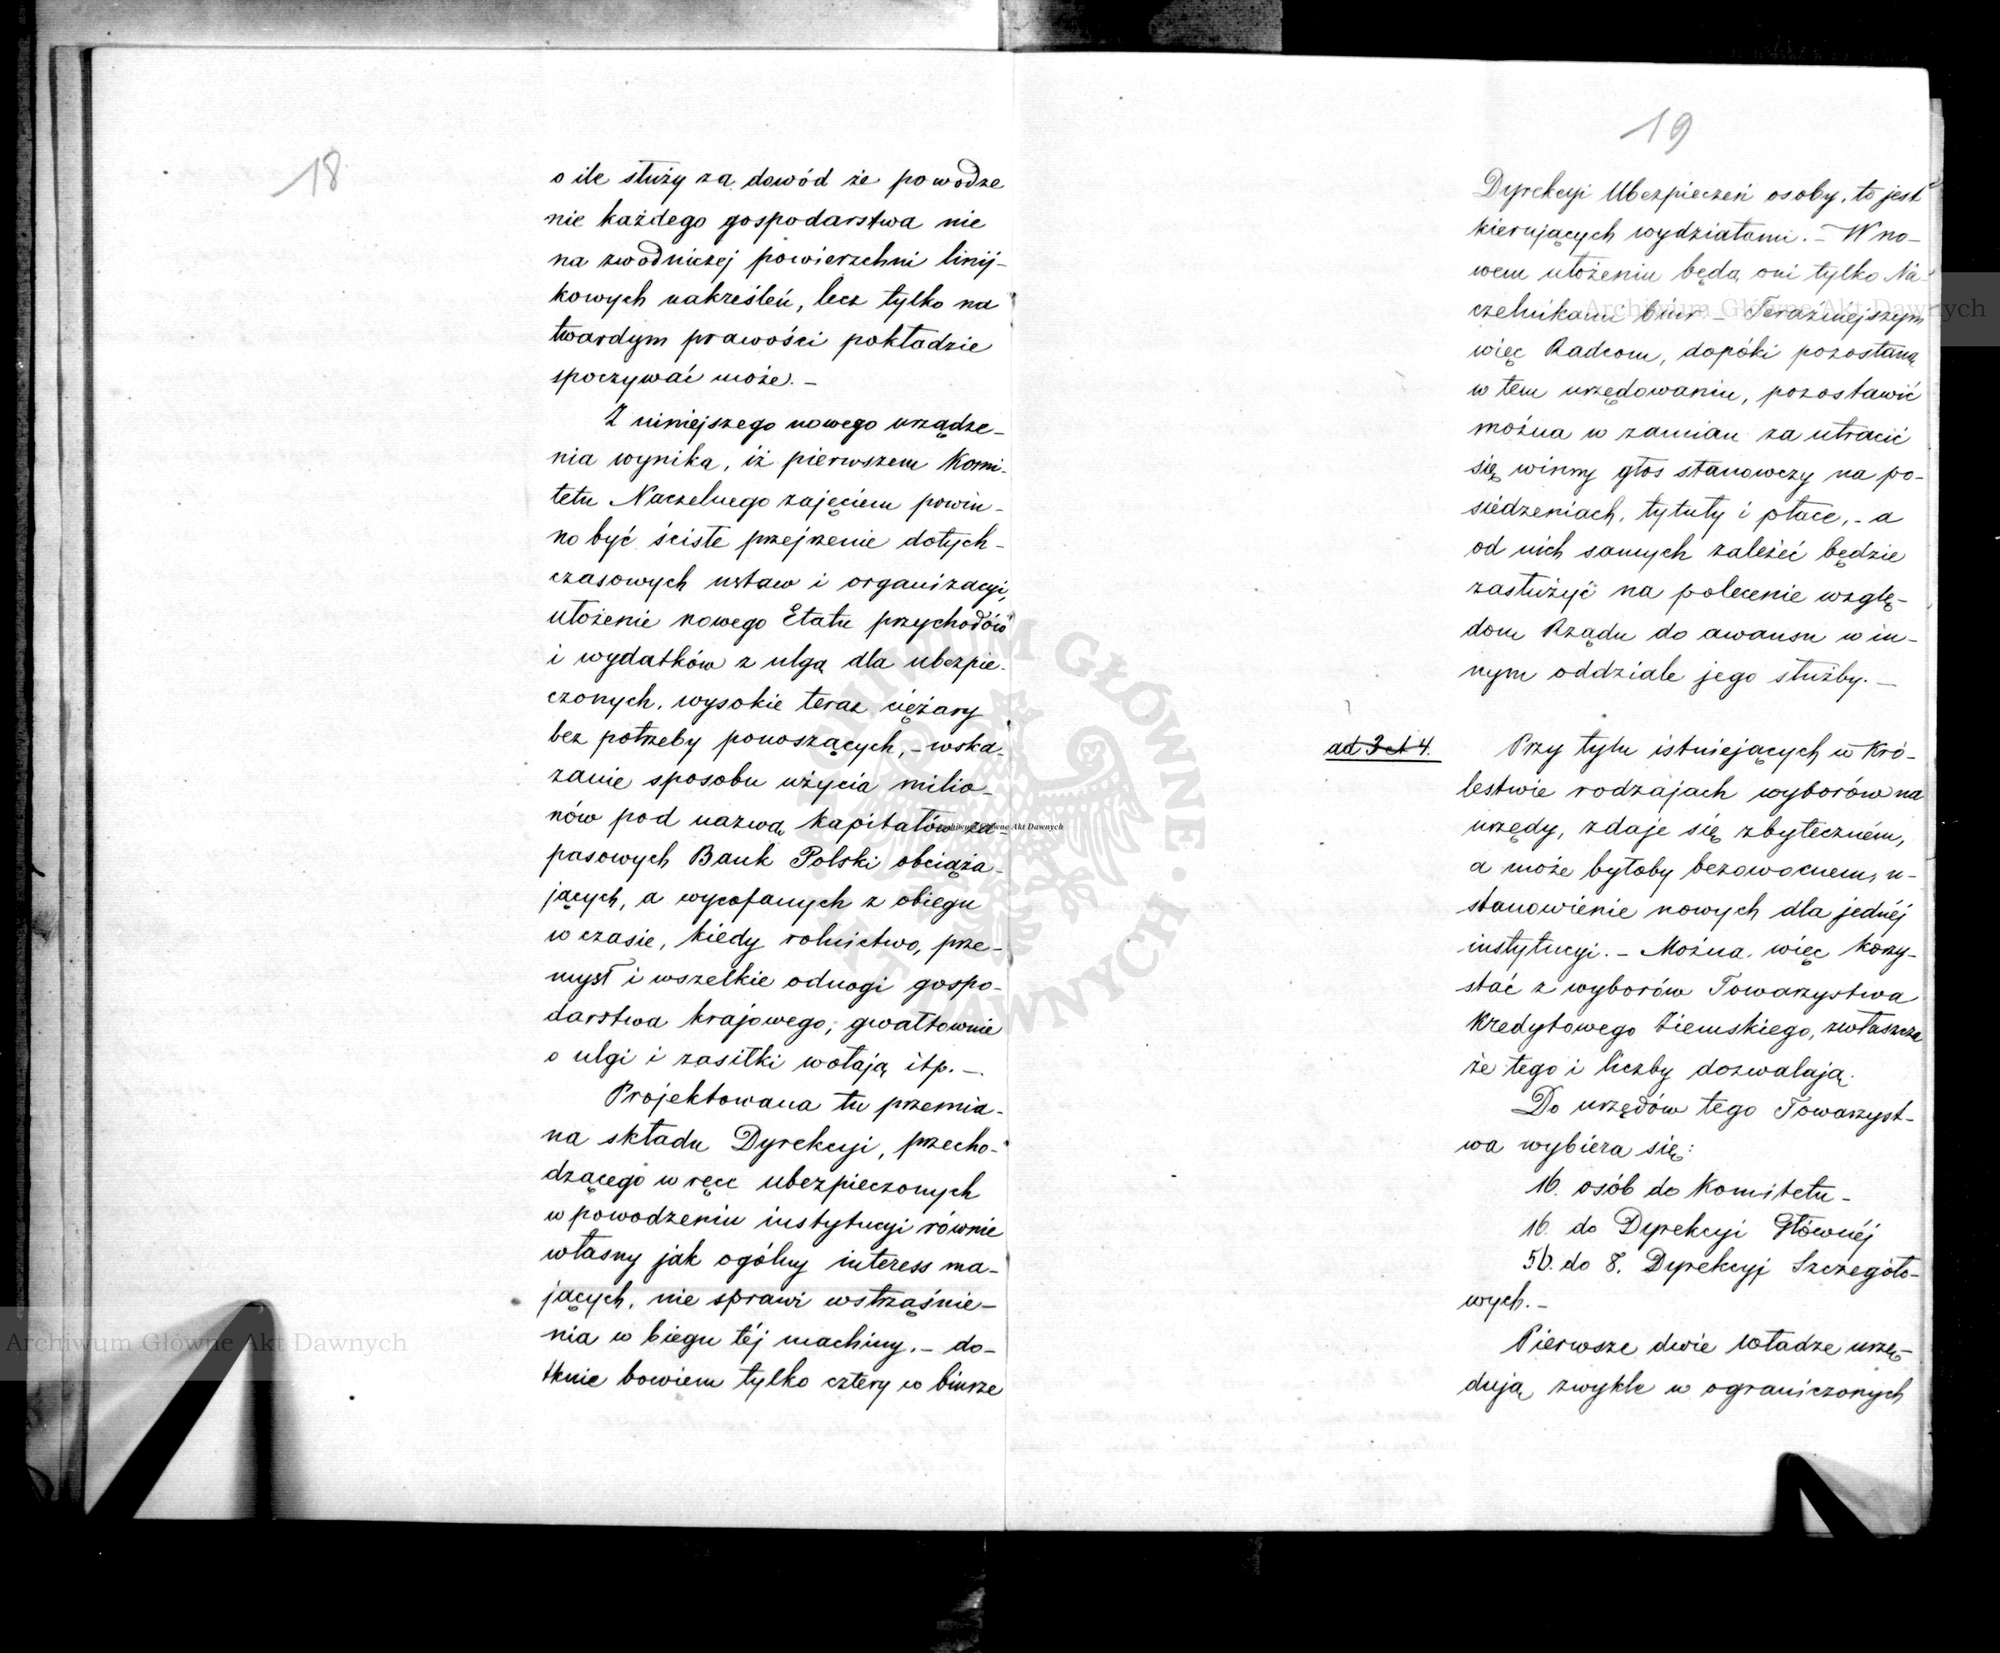 18
o ile służy za dowód że powodze
nie każdego gospodarstwa nie
na zwodniczej powierzchni linij-
kowych nakreśleń, lecz tylko na
twardym prawości pokładzie
spoczywać może. –
Z niniejszego nowego urządze-
nia wynika, iż pierwszem Komi-
tetu Naczelnego zajęciem powin-
no być ściste przejrzenie dotych-
czasowych ustaw i organizacyi,
ułożenie nowego Etatu przychodów
i wydatków z ulgą dla ubezpie-
czonych, wysokie teraz ciężary
bez potrzeby ponoszących, – wska-
zanie sposobu użycia milio-
nów pod nazwą kapitałów za-
pasowych Bank Polski obciąża-
jących, a wycofanych z obiegu
w czasie, kiedy rolnictwo, prze-
mysł i wszelkie odnogi gospo-
darstwa krajowego, gwałtownie
o ulgi i zasiłki wołają itp. –
Projektowana tu przemia-
na składu Dyrekcyi, przecho-
dzącego w ręce ubezpieczonych
w powodzeniu instytucyi równie
własny jak ogólny interess ma-
jących, nie sprawi wstrząśnie-
nia w biegu téj machiny. – do-
tknie bowiem tylko cztery w biurze
19
Dyrekcyi Ubezpieczeń osoby, to jest
kierujących wydziałami. – W no-
wem ułożeniu będą oni tylko Na-
czelnikami biur – Teraźniejszym
więc Radcom, dopóki pozostaną
w tem urzędowaniu, pozostawić
można w zamian za utracić
się winny głos stanowczy na po-
siedzeniach, tytuły i płace, – a
od nich samych zależeć będzie
zasłużyć na polecenie wzglę-
dom Rządu do awansu w in-
nym oddziale jego służby. –
ad 3 et 4.
Przy tylu istniejących w Kró-
lestwie rodzajach wyborów na
urzędy, zdaje się zbyteczném,
a może byłoby bezowocnem, u-
stanowienie nowych dla jednéj
instytucyi. – Można więc korzy-
stać z wyborów Towarzystwa
Kredytowego Ziemskiego, zwłaszcza
że tego i liczby dozwalają.
Do urzędów tego Towarzyst-
wa wybiera się:
16. osób do Komitetu –
16. do Dyrekcyi Głównéj
56. do 8. Dyrekcyj Szczegóło-
wych. –
Pierwsze dwie władze urzę-
dują zwykle w ograniczonych
Archiwum Główne Akt Dawnych
Archiwum Główne Akt Dawnych
Archiwum Główne Akt Dawnych
ARCHIWUM GŁÓWNE AKT DAWNYCH